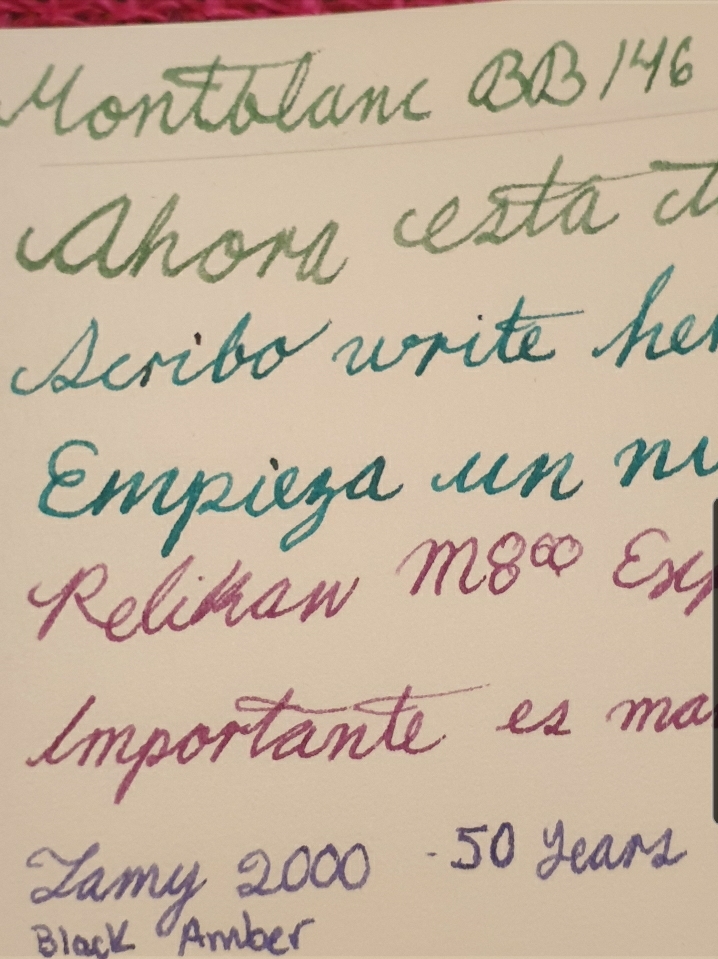 Montblanc BB 146
Ahora esta
Scribo write
Empieza un
Pelikan M800
Importante es
Lamy 2000 - 50 years
Black Amber